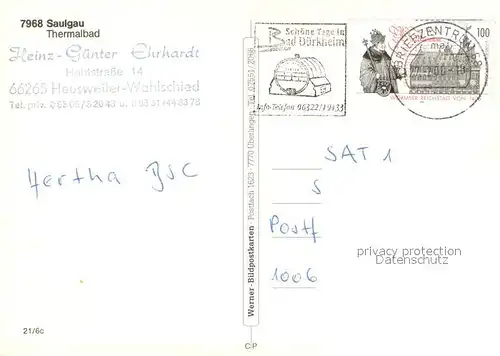 7968 Saulgau
Thermalbad
Heinz-Günter Ehrhardt
Hohlstraße 14
66265 Heusweiler-Wahlschied
Tel. priv.
Hertha BSC
21/6c
Werner-Bildpostkarten · Postfach 1623 · 7770 Überlingen · Tel. 07551/2068
CP
Schöne Tage in
Bad Dürkheim
Info-Telefon 06322/19433
BRIEFZENTRUM
100
WORMSER REICHSTAG VON 1495
SAT 1
S
Postf
1006
privacy protection
Datenschutz